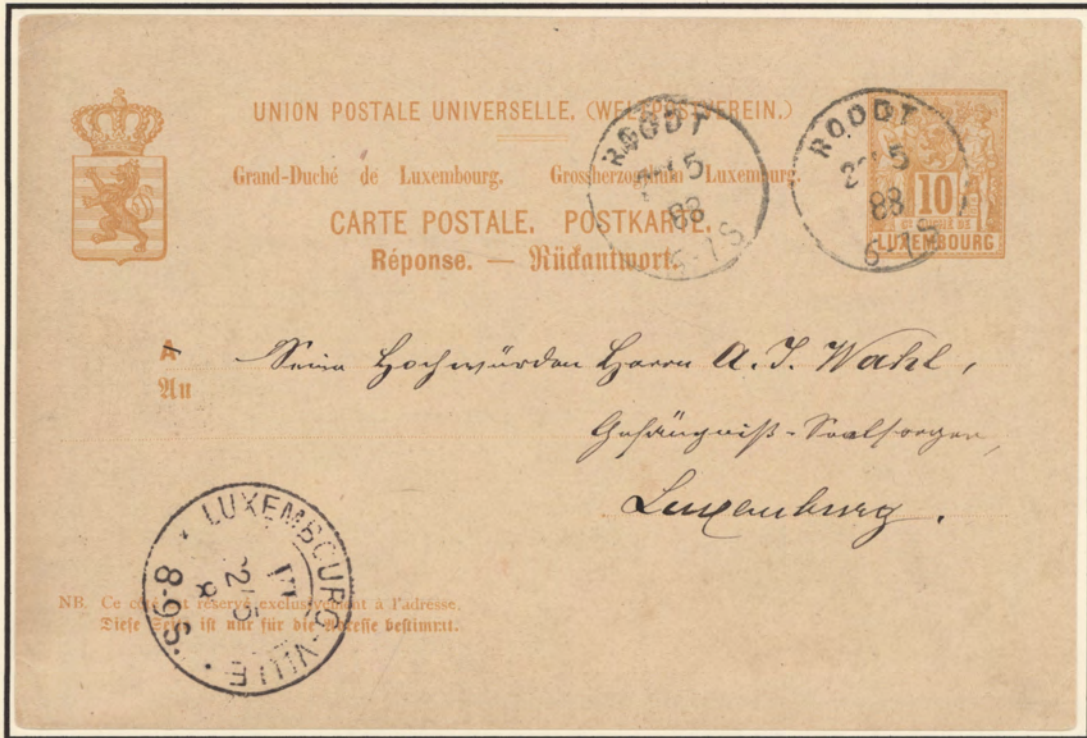 UNION POSTALE UNIVERSELLE. (WELTPOSTVEREIN.)
Grand-Duché de Luxembourg. Grossherzogthum Luxemburg.
CARTE POSTALE. POSTKARTE.
Réponse. — Rückantwort.
ROODT
5
88
6-7 S
ROODT
5
88
6-7 S
10
CS GD DUCHÉ DE
LUXEMBOURG
A
An
Seine Hochwürden Herrn A. J. Wahl,
Gefängniß-Seelsorger,
Luxemburg.
LUXEMBOURG-VILLE
8-9 S.
NB. Ce côté est réservé exclusivement à l'adresse.
Diese Seite ist nur für die Adresse bestimmt.